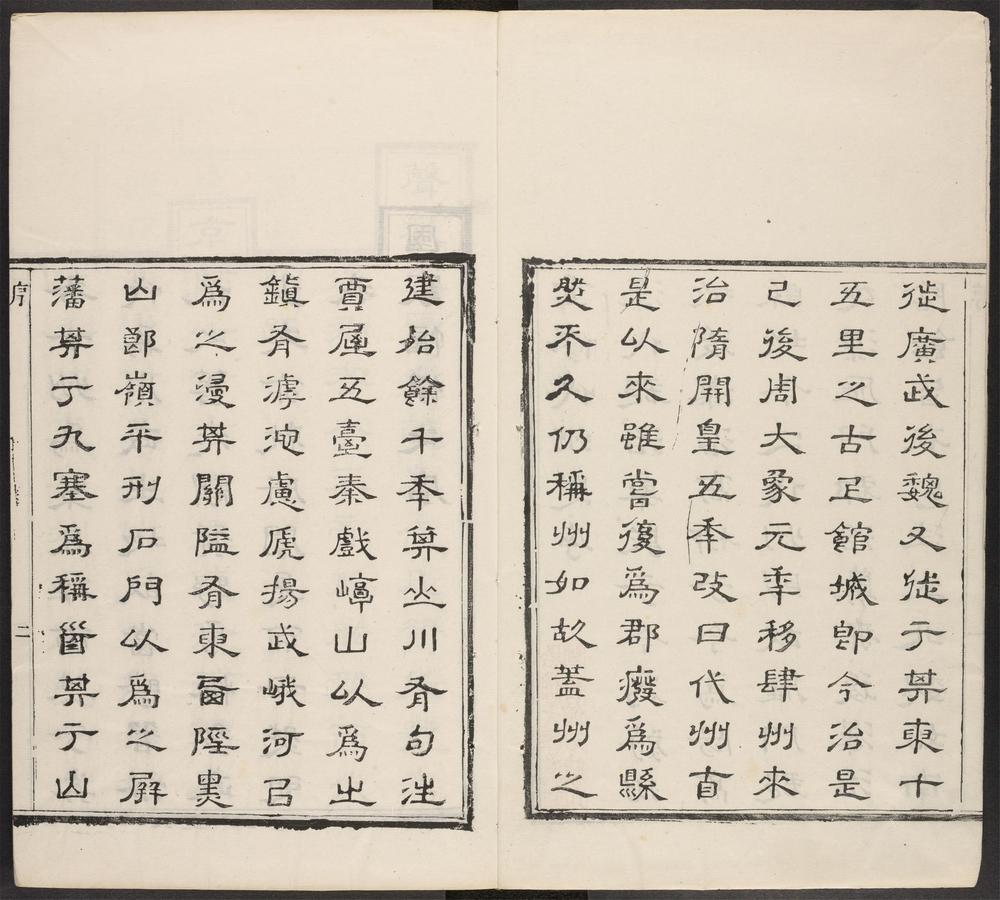 徙廣武後魏又徙于其東十
五里之古上館城即今治是
已後周大象元秊移肆州來
治隋開皇五秊改曰代州首
是以來雖嘗復爲郡廢爲縣
然不久仍稱州如故蓋州之
建始餘千秊其山川有句注
夏屋五臺秦戲崞山以爲之
鎮有滹沱慮虒揚武峨河以
爲之浸其關隘有東西陘奧
山鄭嶺平刑石門以爲之屏
藩其于九塞爲稱首其于山
序
二